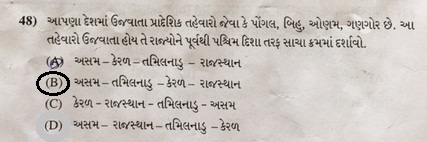 48) આપણા દેશમાં ઉજવાતા પ્રાદેશિક તહેવારો જેવા કે પોંગલ, બિહુ, ઓણમ, ગણગોર છે. આ
તહેવારો ઉજવાતા હોય તે રાજ્યોને પૂર્વથી પશ્ચિમ દિશા તરફ સાચા ક્રમમાં દર્શાવો.
(A) અસમ – કેરળ – તમિલનાડુ – રાજસ્થાન
(B) અસમ – તમિલનાડુ – કેરળ – રાજસ્થાન
(C) કેરળ - રાજસ્થાન - તમિલનાડુ - અસમ
(D) અસમ – રાજસ્થાન – તમિલનાડુ – કેરળ